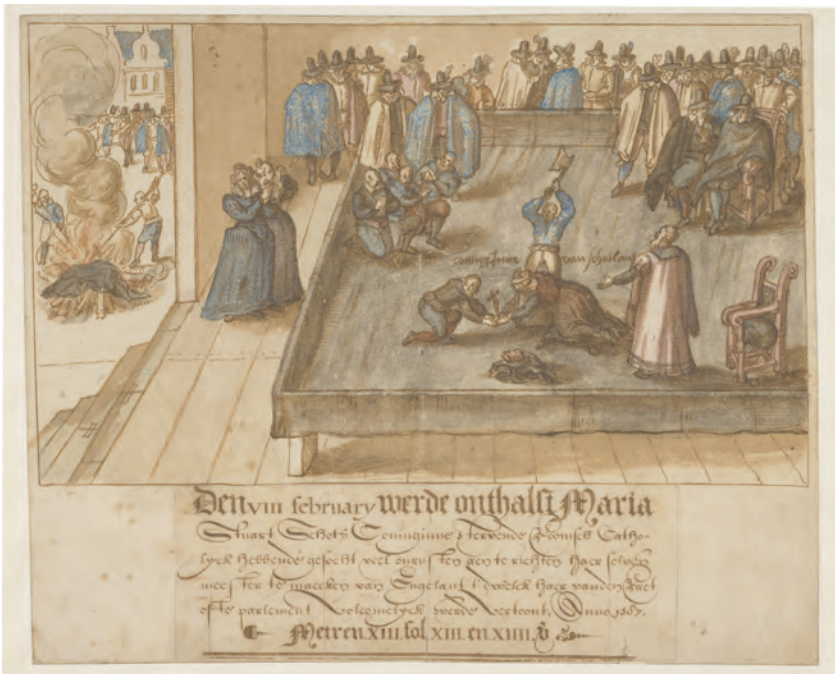 coninginne van schotlant
Den VIII february werde onthalst Maria
Stuart Schots Coninginne stervende Roomsch Catho-
lyck hebbende gesocht veel onrusten aen te richten haer selven
meester te maecken van Engelant t dwelck haer vanden Raet
ofte parlement Volcomelyck werde Vertoont, Anno 1587.
Meteren XIII fol XIII en XIIII